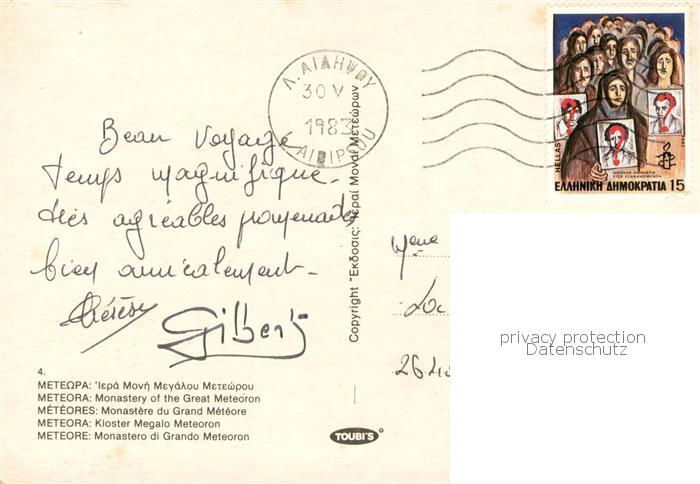 Λ. ΑΙΔΗΨΟΥ
30 V
1983
AIDIPSOU
HELLAS
ΔΙΕΘΝΗΣ ΑΜΝΗΣΤΙΑ
ΕΤΟΣ ΕΞΑΦΑΝΙΣΜΕΝΩΝ
ΕΛΛΗΝΙΚΗ ΔΗΜΟΚΡΑΤΙΑ 15
Beau Voyage
temps magnifique.
très agréables promenades
bien amicalement.
Thérèse
Gilbert
Copyright "Εκδοσις: Ἱεραί Μοναί Μετεώρων
Mme
26
privacy protection
Datenschutz
4.
ΜΕΤΕΩΡΑ: Ἱερά Μονή Μεγάλου Μετεώρου
METEORA: Monastery of the Great Meteoron
MÉTÉORES: Monastère du Grand Météore
METEORA: Kloster Megalo Meteoron
METEORE: Monastero di Grando Meteoron
TOUBI'S